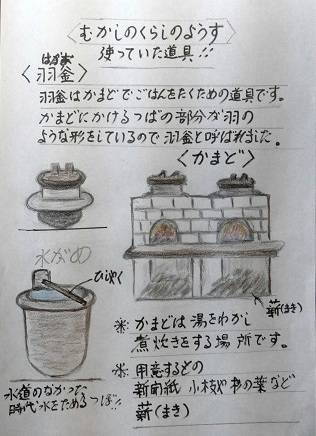 〈むかしのくらしのようす〉
使っていた道具!!
はがま
〈羽釜〉
羽釜はかまどでごはんをたくための道具です。
かまどにかけるつばの部分が羽の
ような形をしているので羽釜と呼ばれました。
〈かまど〉
水がめ
ひしゃく
水道のなかった
時代水をためるつぼ!!
薪(まき)
※ かまどは湯をわかし
煮炊きをする場所です。
※ 用意するもの
新聞紙 小枝や木の葉など
薪(まき)